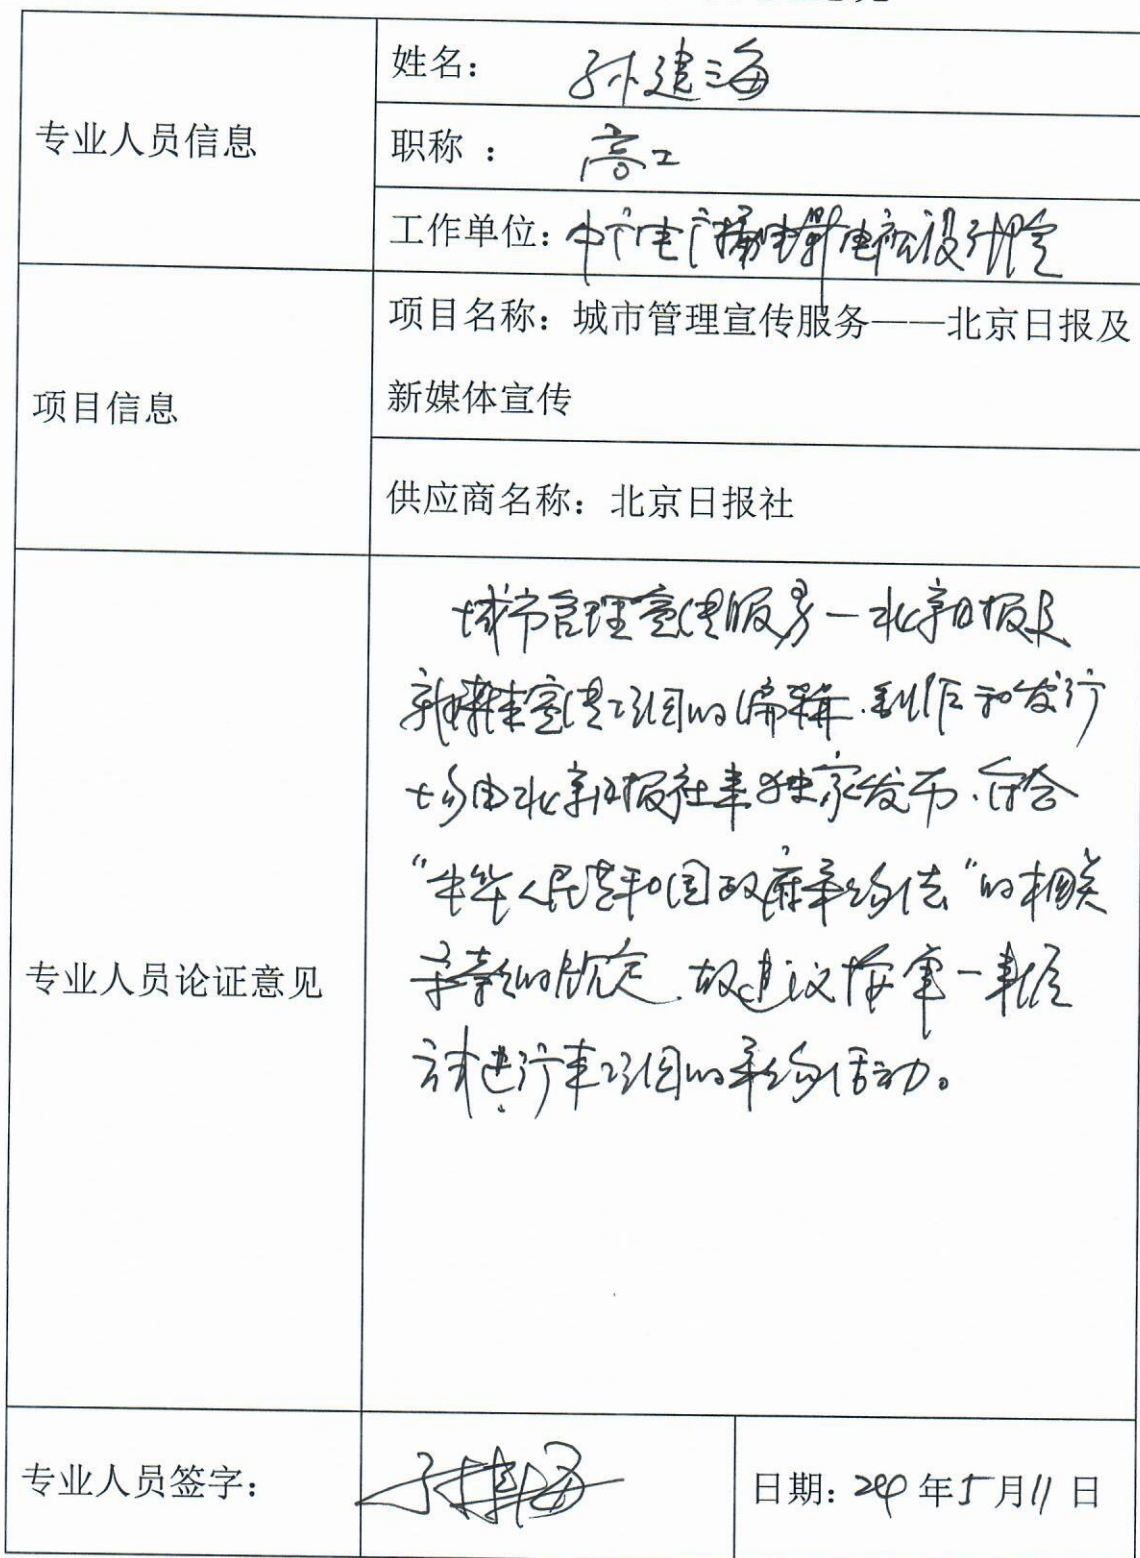 专业人员信息
姓名: 孙建海
职称 : 高工
工作单位: 中广电广播电影电视设计院
项目信息
项目名称: 城市管理宣传服务——北京日报及
新媒体宣传
供应商名称: 北京日报社
专业人员论证意见
城市管理宣传服务—北京日报及
新媒体宣传项目的编辑、制作和发行
均由北京日报社来独家发布、符合
“中华人民共和国政府采购法”的相关
条款的规定、故建议按单一来源
方式进行本项目的采购活动。
专业人员签字:
孙建海
日期: 年5月11日